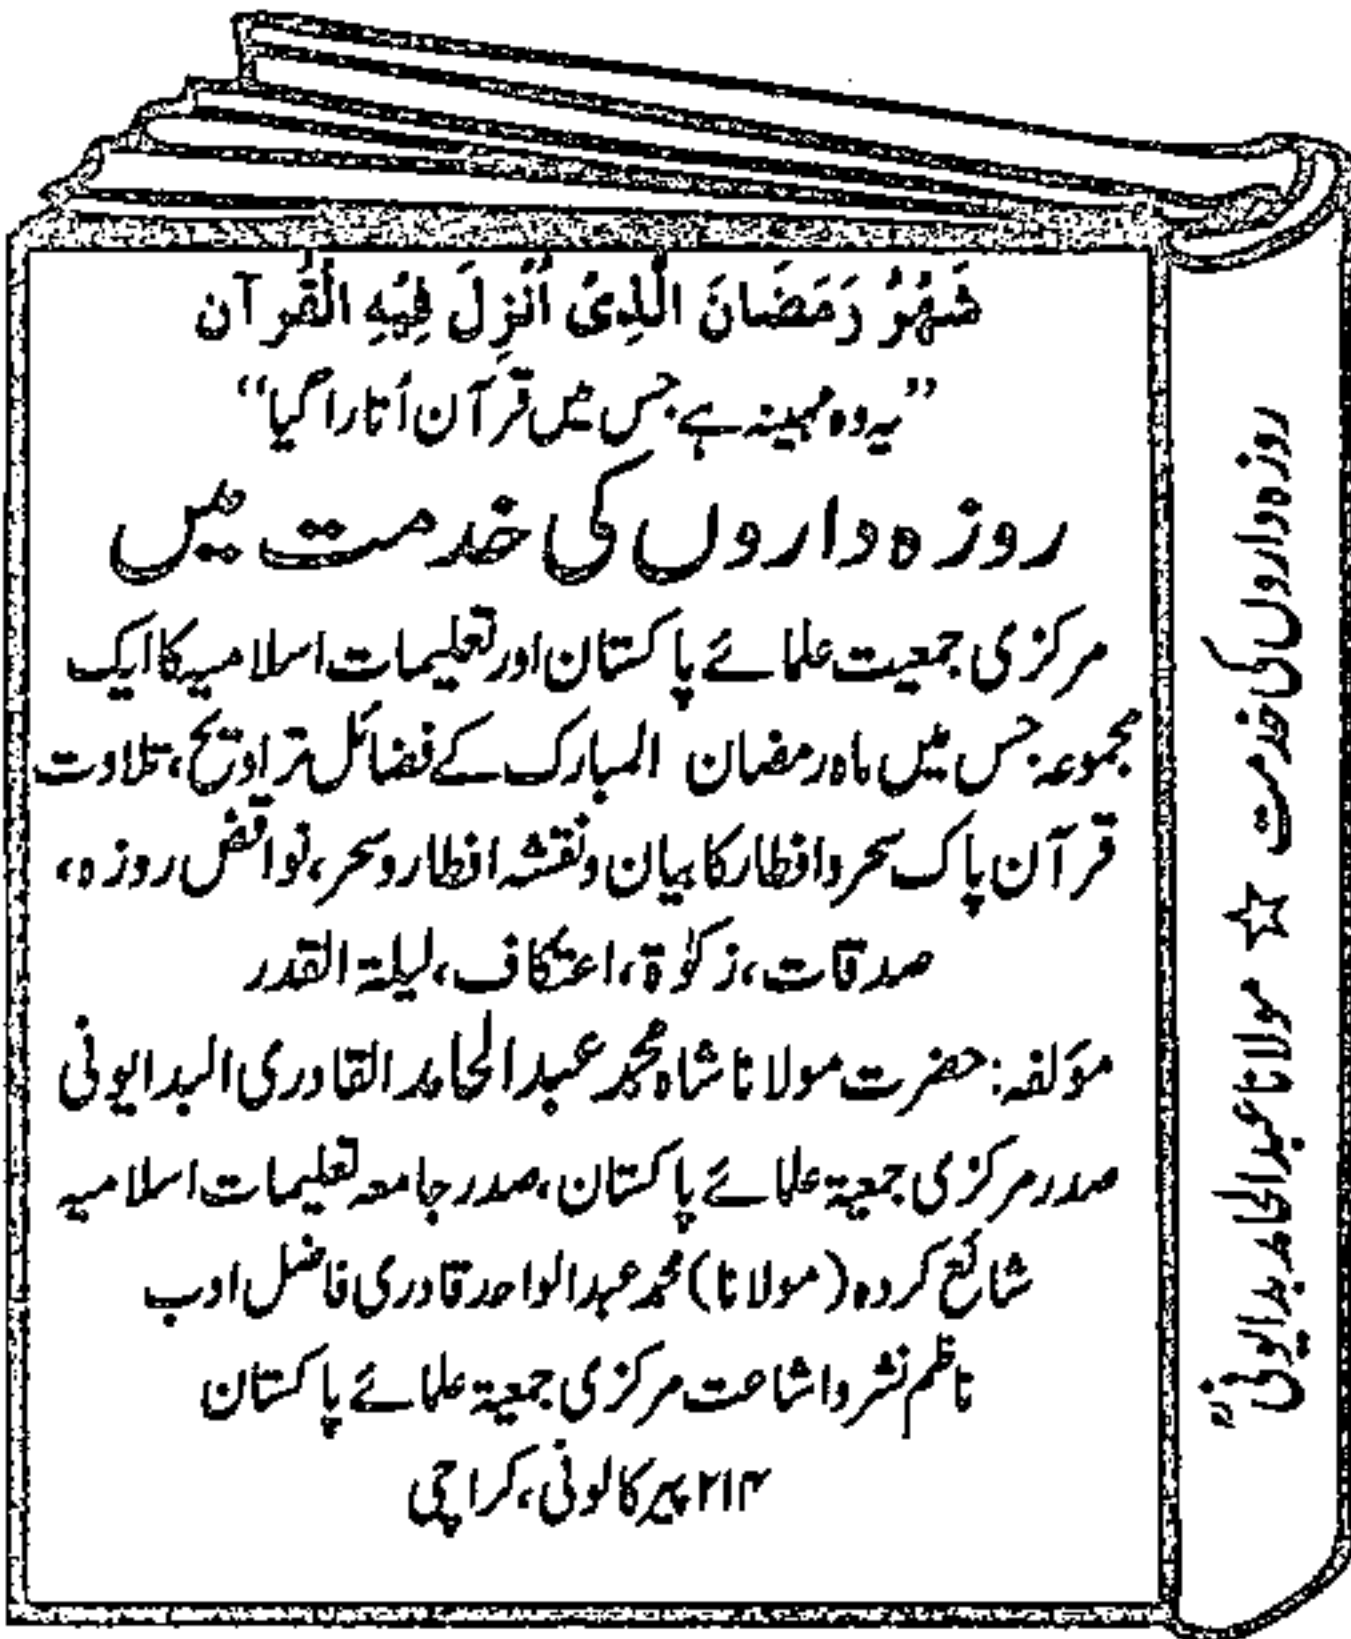 شَهْرُ رَمَضَانَ الَّذِیْ اُنْزِلَ فِیْهِ الْقُرآن
’’یہ وہ مہینہ ہے جس میں قرآن اُتارا گیا‘‘
روزہ داروں کی خدمت میں
مرکزی جمعیت علمائے پاکستان اور تعلیمات اسلامیہ کا ایک
مجموعہ جس میں ماہ رمضان المبارک کے فضائل تراویح، تلاوت
قرآن پاک سحر و افطار کا بیان و نقشہ افطار و سحر، نواقض روزہ،
صدقات، زکوٰۃ، اعتکاف، لیلۃ القدر
مؤلفہ: حضرت مولانا شاہ محمد عبدالحامد القادری البدایونی
صدر مرکزی جمعیۃ علمائے پاکستان، صدر جامعہ تعلیمات اسلامیہ
شائع کردہ (مولانا) محمد عبدالواحد قادری فاضل ادب
ناظم نشر و اشاعت مرکزی جمعیۃ علمائے پاکستان
۲۱۴ پیر کالونی، کراچی
روزہ داروں کی خدمت ☆ مولانا عبدالحامد بدایونیؒ